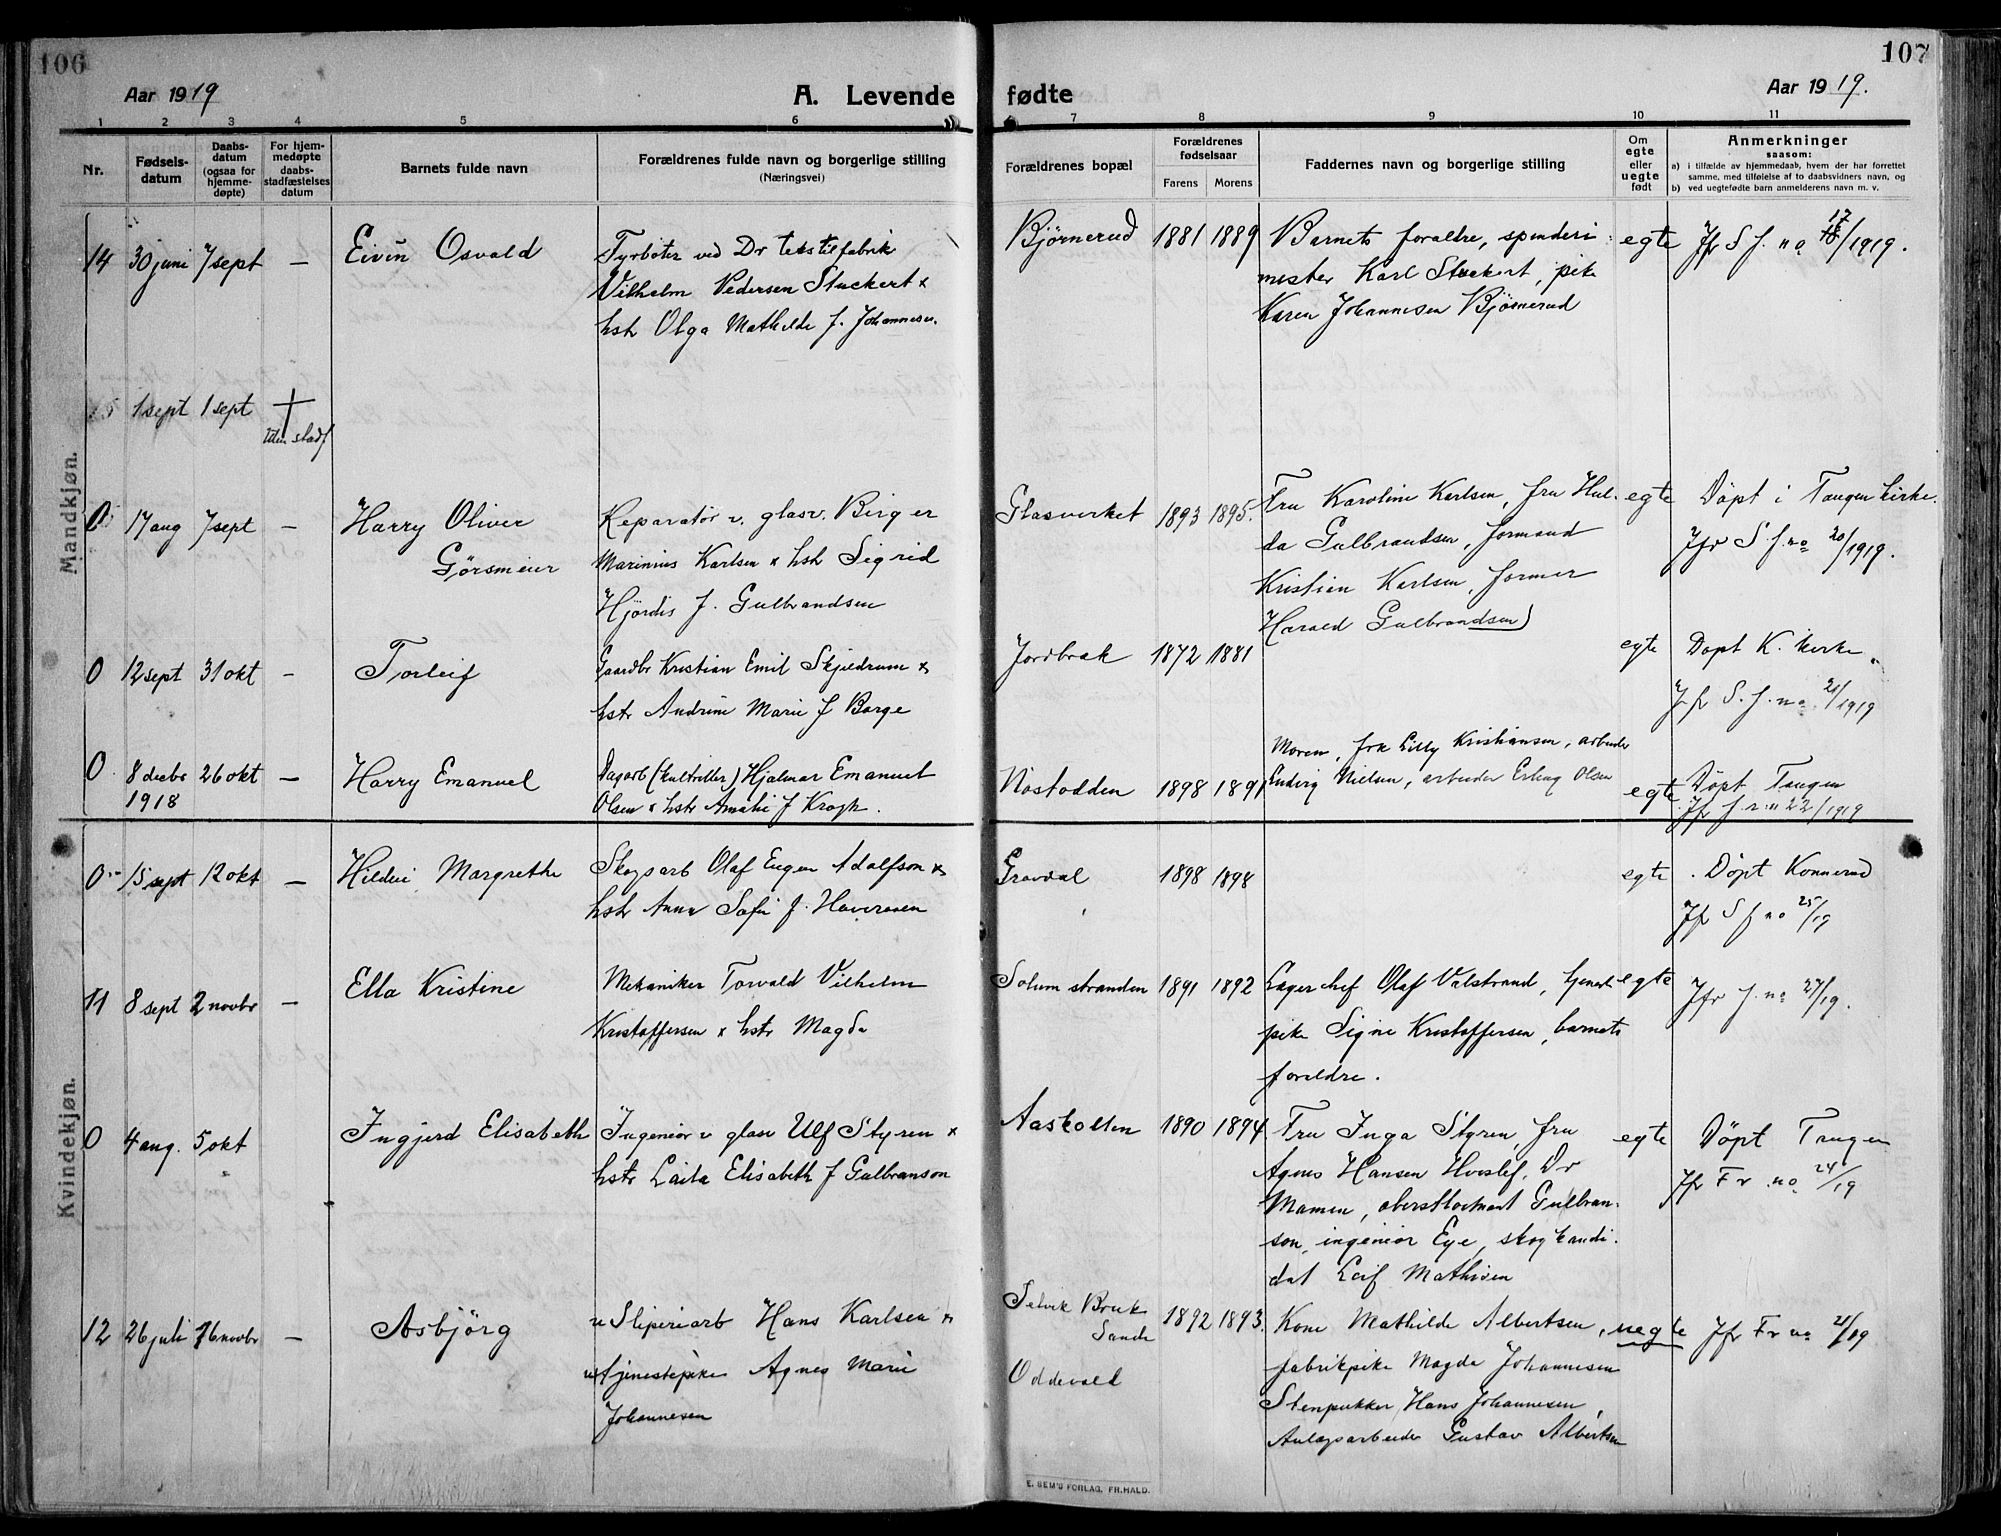 106
Aar 1919
A. Levende
1 2 3 4 5 6
Nr.
Fødsels-
datum
Daabs-
datum
(ogsaa for
hjemme-
døpte)
For hjem-
medøpte
daabs-
stadfæstelses
datum
Barnets fulde navn
Forældrenes fulde navn og borgerlige stilling
(Næringsvei)
Mandkjøn.
14 30 juni 7 sept – Osvald
ved Dr tekstilfabrik
Vilhelm Pedersen Stuckert x
hstr Olga Mathilde f. Johannesen.
1 sept 1 sept
uten stadf
0 17 aug 7 sept – Harry Oliver
Gørsmeier
Reparatør v. glasv. Birger
Marinius Karlsen x hstr Sigrid
Hjördis f. Gulbrandsen
0 12 sept 31 okt – Torleif
Gaardbr Kristian Emil Skjedrum x
hstr Andrine Marie f Borge
0 8 decbr 26 okt – Harry Emanuel
1918
Dagarb Hjalmar Emanuel
Olsen x hstr Amalie f Krogh.
Kvindekjøn.
0 15 sept 12 okt – Margrethe
Skogsarb Olaf Eugen Adolfson x
hstr Anna Sofie f.
11 8 sept 2 novbr – Ella Kristine
Mekaniker Torvald Vilhelm
Kristoffersen x hstr Magda
0 4 aug. 5 okt Ingjerd Elisabeth
Ingeniør v glasv Ulf Styren x
hstr Laila Elisabeth f Gulbranson
12 26 juli 16 novbr – Asbjörg
u Sliperiarb Hans Karlsen x
u tjenestepike Agnes Marie
Johannesen
107
fødte
Aar 1919.
7 8 9 10 11
Forældrenes bopæl
Forældrenes
fødselsaar
Farens Morens
Faddernes navn og borgerlige stilling
Om
egte
eller
uegte
født
Anmerkninger
saasom:
a) i tilfælde av hjemmedaab, hvem der har forrettet
samme, med tilføielse af to daabsvidners navn, og
b) ved uegtefødte barn anmelderens navn m. v.
Bjørnerud 1881 1889 Barnets foreldre, spinderi egte Jfr S f. no 17/1919.
mester Karl Stuckert, pike
Karen Johannesen Bjørnerud
Glasverket 1893 1895. Fru Karoline Karlsen, fru Hul- egte Döpt i Tangen kirke.
da Gulbrandsen, formand Jfr S. f. no 20/1919.
Kristian Karlsen, former
Harald Gulbrandsen
Jordbrek 1872 1881 egte Döpt K. kirke
Jfr S. f. no 21/1919
Moren, frk Lilly Kristiansen, arbeider
Nøstodden 1898 1891 Ludvig Nielsen, arbeider Erling Olsen egte Döpt Tangen
Jfr f. r. n 22/1919
Gravdal 1898 1898 egte Döpt Konnerud
Jfr S f no 25/19
Solumstranden 1891 1892 Lagerchef Olaf Valstrand, tjeneste egte Jfr f. no 27/19.
pike Signe Kristoffersen, barnets
foreldre.
Aaskolten 1890 1894 Fru Inga Styren, fru egte Döpt Tangen
Agnes Hansen Hvoslef, Dr Jfr Fr. no 24/19
Mamen, oberstløitnant Gulbran-
son, ingeniør Eye, skogkandi-
dat Leif Mathisen
Selvik Bruk 1892 1893. Kone Mathilde Albertsen, uegte Jfr Fr no 28/19
Sande
fabrikpike Magda Johannesen
Oddevald
Stenpukker Hans Johannesen,
Anlægsarbeider Gustav Albertsen
E. SEM'S FORLAG, FR.HALD.